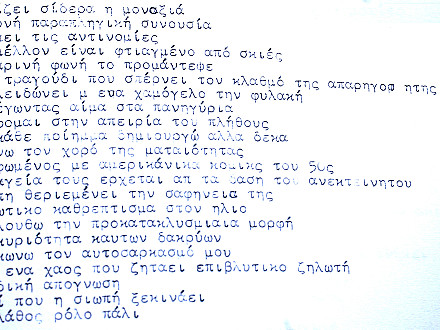 ίζει σίδερα η μοναξιά
ονή παραπληγική συνουσία
πει τις αντινομίες
μέλλον είναι φτιαγμένο από σκιές
ρινή φωνή το προμάντεψε
τραγούδι που σπέρνει τον κλαθμό της απαρηγορ ητης
λειδώνει μ ενα χαμόγελο την φυλακή
έγωντας αίμα στα πανηγύρια
ρομαι στην απειρία του πλήθους
κάθε ποίημμα δημιουργώ αλλα δεκα
νω τον χορό της ματαιότητας
φωμένος με αμερικάνικα κομικς του 50ς
αγεία τους ερχεται απ τα δαση του ανεκτείνητου
πη θεριεμένει την σαφηνεια της
ωτικο καθρεπτισμα στον ηλιο
λουθω την προκατακλυσμιαια μορφή
κυριότητα καυτων δακρύων
κωνω τον αυτοσαρκασμό μου
ενα χαος που ζηταει επιβλυτικο ζηλωτή
δική απογνωση
ί που η σιωπή ξεκινάει
λάθος ρόλο πάλι